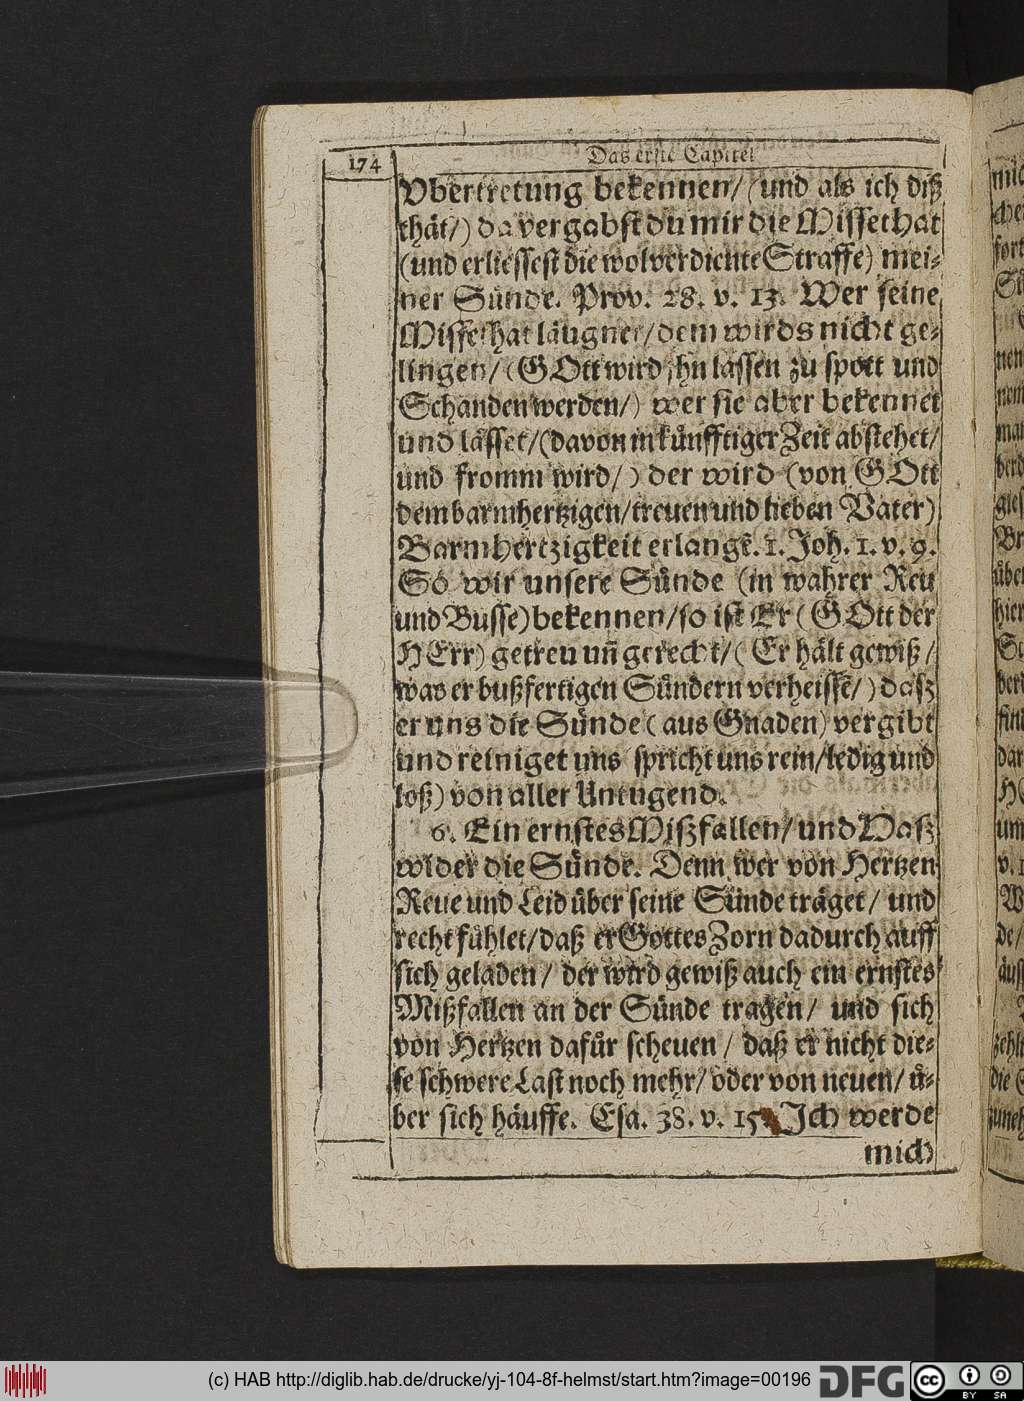 174
Das erste Capitel
Vbertretung bekennen/ (und als ich diß
thät/) da vergabst du mir die Missethat
(und erliessest die wolverdiente Straffe) mei-
ner Sünde. Prov. 28. v. 13. Wer seine
Missethat läugnet/ dem wirds nicht ge-
lingen/ (GOtt wird ihn lassen zu spott und
Schanden werden/) wer sie aber bekennet
und lässet/ (davon in künfftiger Zeit abstehet/
und fromm wird/) der wird (von GOtt
dem barmhertzigen/ treuen und lieben Vater)
Barmhertzigkeit erlangẽ. 1. Joh. 1. v. 9.
So wir unsere Sünde (in wahrer Reu
und Busse) bekennen/ so ist Er (GOtt der
HErr) getreu uñ gerecht/ (Er hält gewiß/
was er bußfertigen Sündern verheissẽ/) daß
er uns die Sünde (aus Gnaden) vergibt
und reiniget uns (spricht uns rein/ ledig und
loß) von aller Untugend.
6. Ein ernstes Mißfallen/ und Haß
wider die Sünde. Denn wer von Hertzen
Reue und Leid über seine Sünde träget/ und
recht fühlet/ daß er Gottes Zorn dadurch auff
sich geladen/ der wird gewiß auch ein ernstes
Mißfallen an der Sünde tragen/ und sich
von Hertzen dafür scheuen/ daß er nicht die-
se schwere Last noch mehr/ oder von neuen/ ü-
ber sich häuffe. Esa. 38. v. 15. Jch werde
mich
(c) HAB http://diglib.hab.de/drucke/yj-104-8f-helmst/start.htm?image=00196
DFG
cc
BY SA